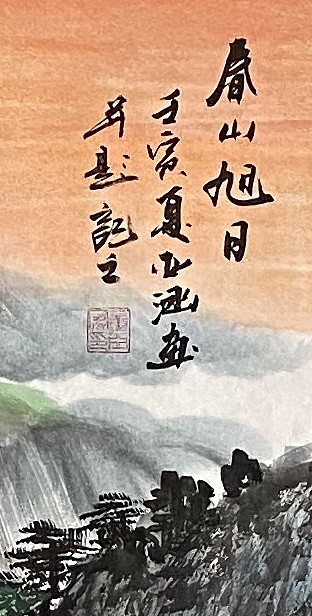 春山旭日
壬寅夏
画
并题记之